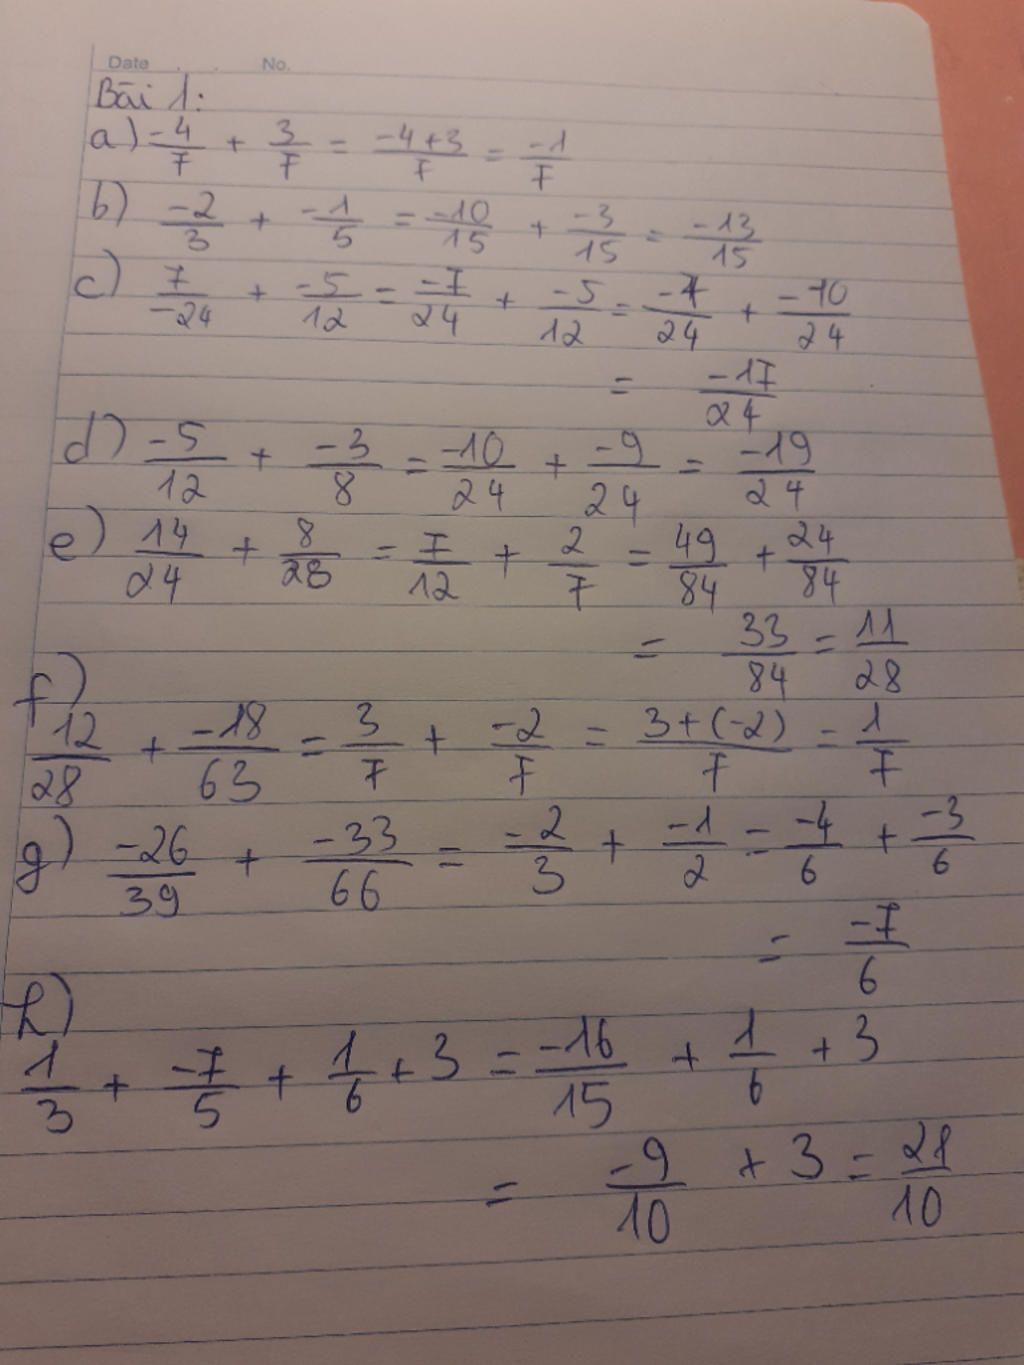 Date . . No.
Bài 1:
a) -4/7 + 3/7 = -4+3/7 = -1/7
b) -2/3 + -1/5 = -10/15 + -3/15 = -13/15
c) 7/-24 + -5/12 = -7/24 + -5/12 = -7/24 + -10/24
= -17/24
d) -5/12 + -3/8 = -10/24 + -9/24 = -19/24
e) 14/24 + 8/28 = 7/12 + 2/7 = 49/84 + 24/84
= 33/84 = 11/28
f)
12/28 + -18/63 = 3/7 + -2/7 = 3+(-2)/7 = 1/7
g) -26/39 + -33/66 = -2/3 + -1/2 = -4/6 + -3/6
= -7/6
h)
1/3 + -7/5 + 1/6 + 3 = -16/15 + 1/6 + 3
= -9/10 + 3 = 21/10